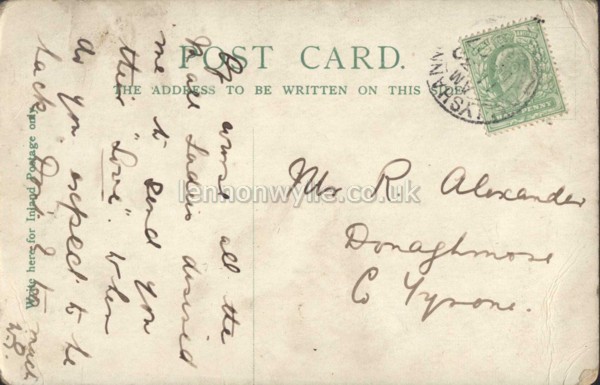 POST CARD.
THE ADDRESS TO BE WRITTEN ON THIS SIDE.
Write here for Inland Postage only.
Of course all the
Ladies desired
me to send you
their "Love" when
do you expect to be
back much
Mr R Alexander
Donaghmore
Co Tyrone.
YSHANN
PENNY
lennonwylie.co.uk